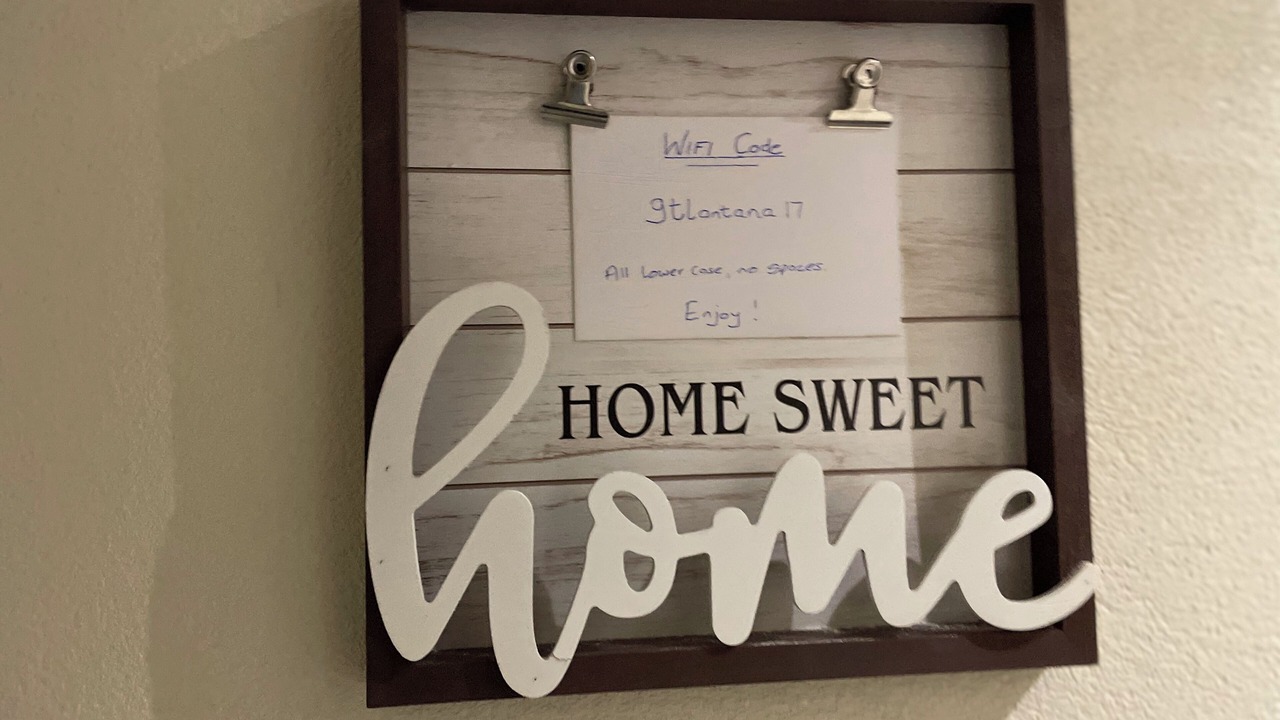 WIFI Code
gtlantana 17
All lower case, no spaces.
Enjoy !
HOME SWEET
home